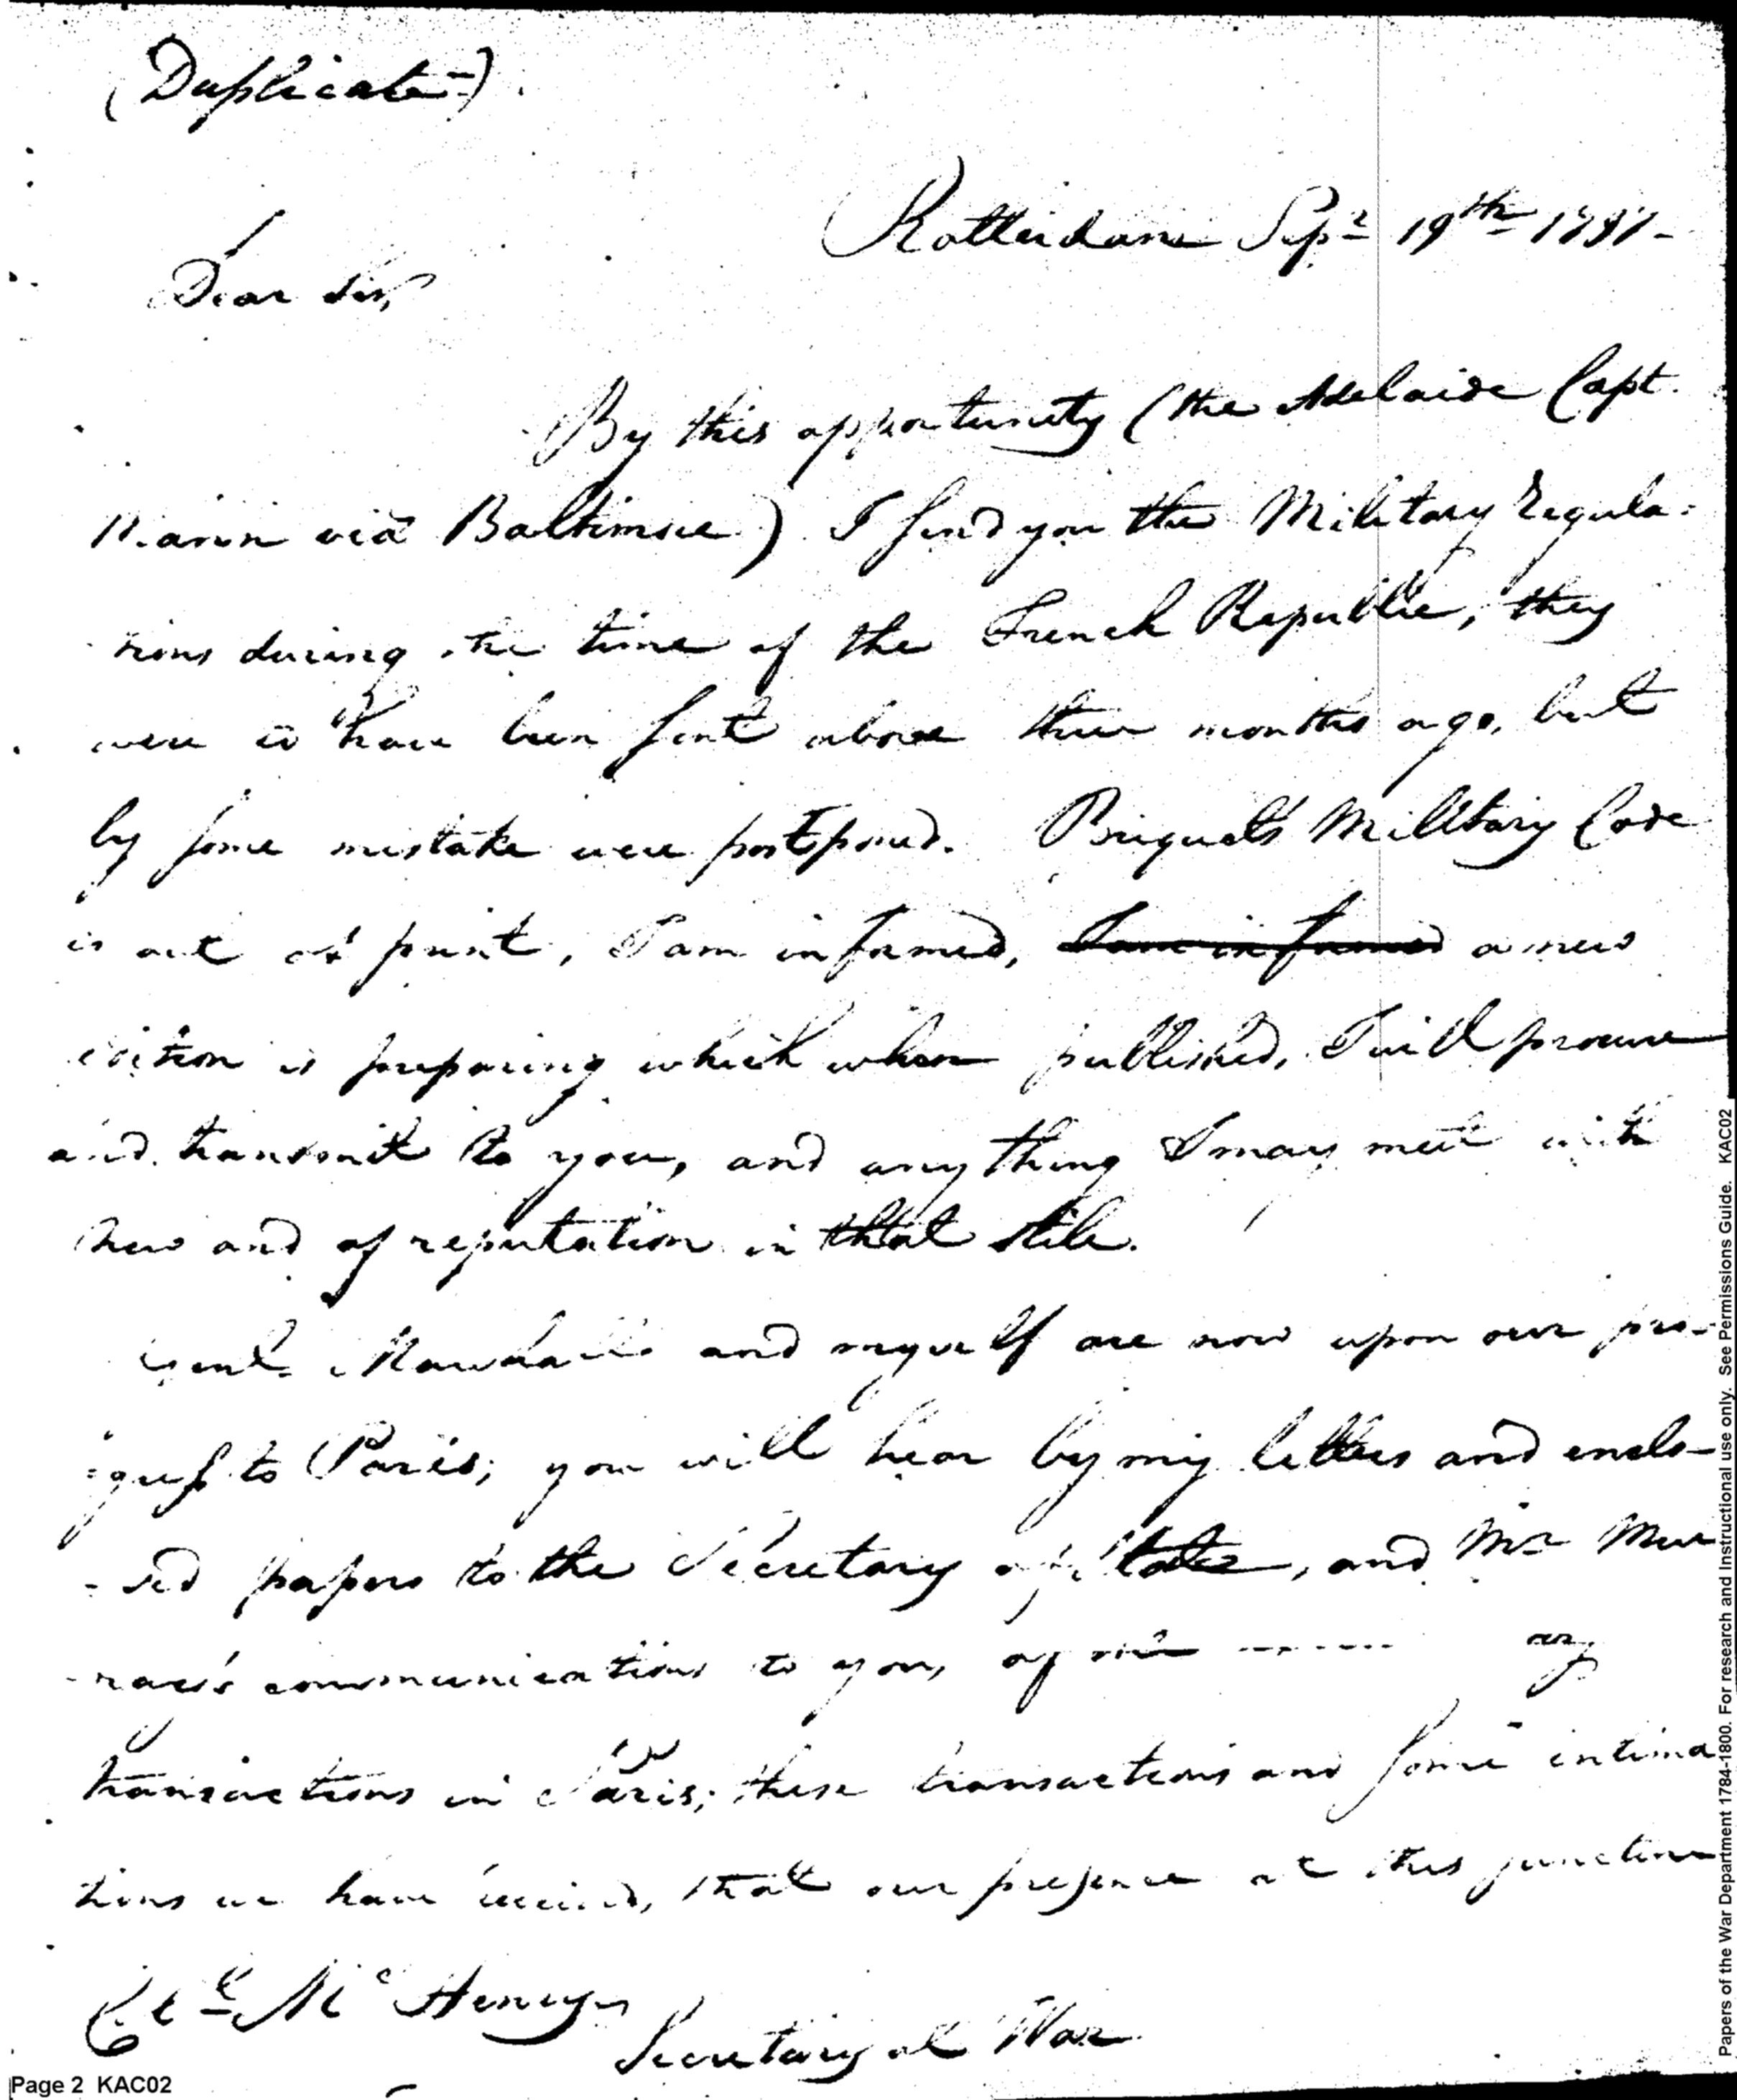 (Duplicate)
Rotterdam Sepr 19th 1797-
Dear Sir,
By this opportunity (the Adelaide Capt.
via Baltimore) I send you the Military Regula=
tions during the time of the French Republic, they
were to have been sent above three months ago, but
by some mistake were postponed. Briquets Military Code
is out of print, I am informed, I am informed a new
edition is preparing which when published, I will procure
and transmit to you, and any thing I may meet with
new and of reputation in that stile.
Genl. Marshall and myself are now upon our pro-
=gress to Paris; you will hear by my letters and enclo-
-sed papers to the Secretary of State, and Mr Mur
-ray's communications to you, of the
transactions in Paris; these transactions and some intima
tions we have received, that our presence at this juncture
McHenry
Secretary at War
Page 2 KAC02
Papers of the War Department 1784-1800. For research and Instructional use only. See Permissions Guide. KAC02